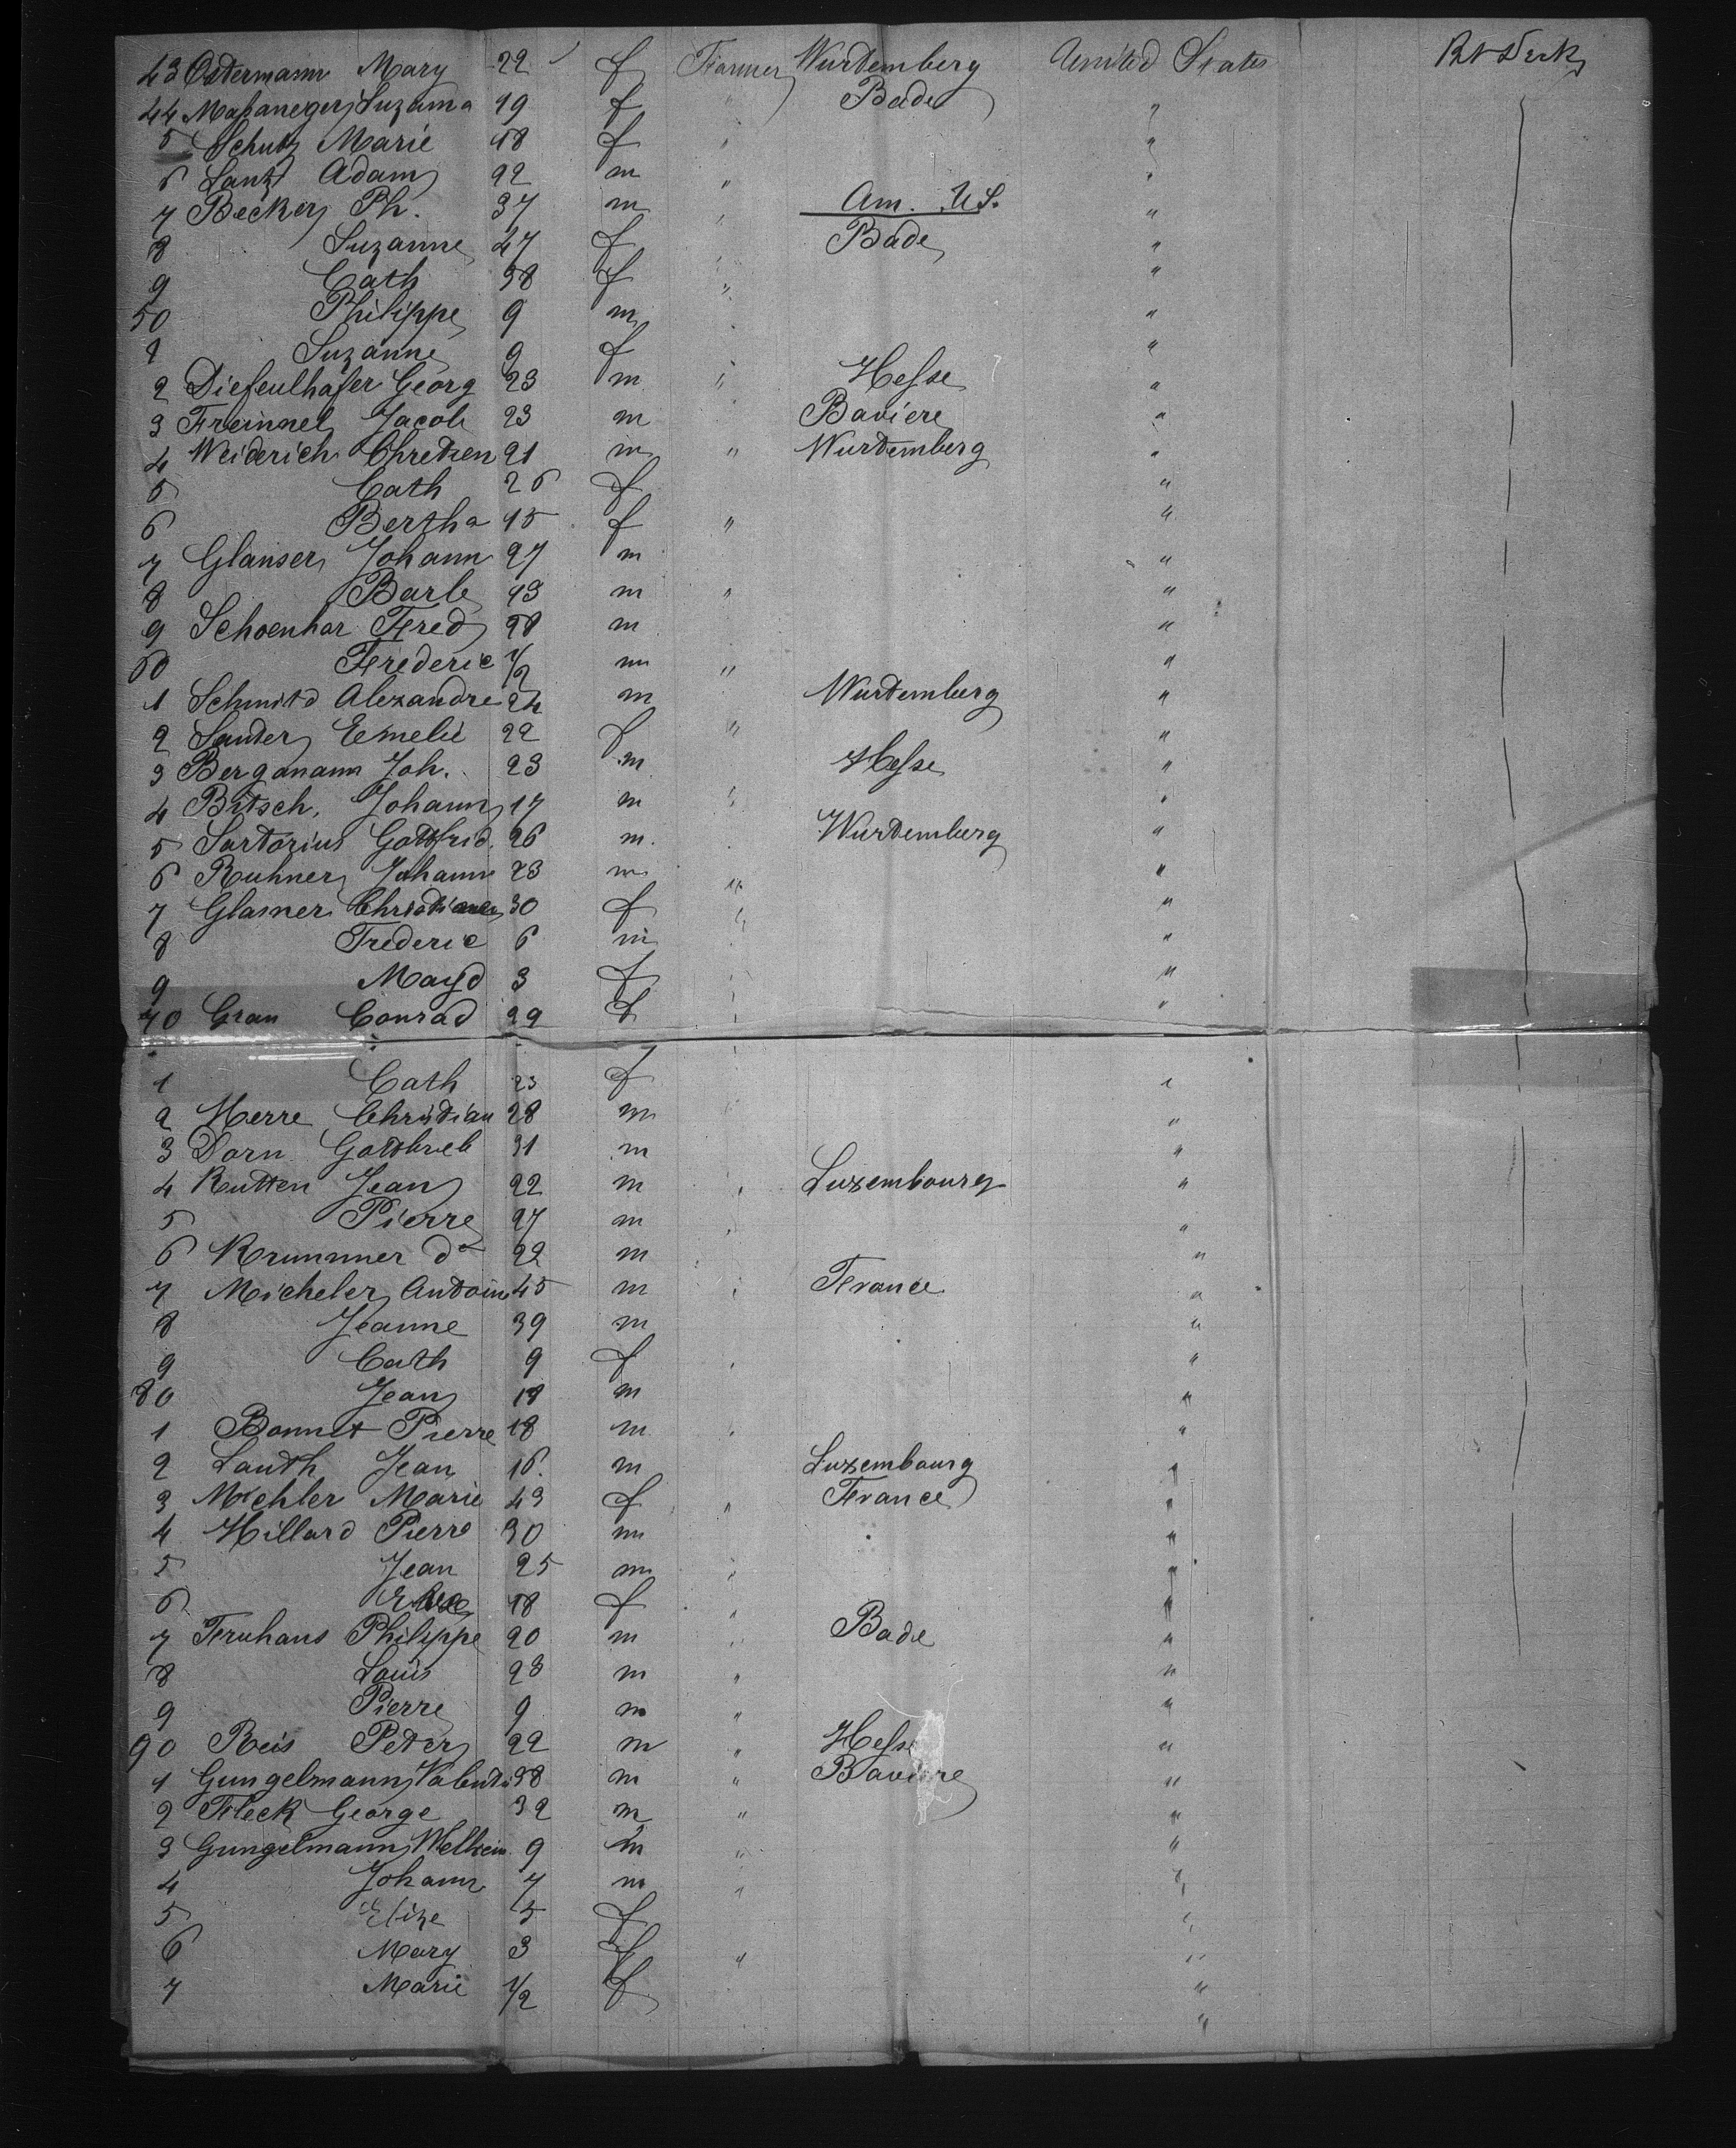 43 Ostermann Mary 22 f Farmer Wurtemberg United States Bet Deck
44 Suzanna 19 f " Bade "
5 Schutz Marie 18 f " "
6 Lantz Adam 22 m " "
7 Becker Ph. 37 m " Am. U.S. "
8 Suzanne 47 f " Bade "
9 Cath 38 f " "
50 Philippe 9 m "
1 Suzanne 9 f "
2 Georg 23 m " Hesse "
3 Jacob 23 m Baviere "
4 Weiderich 21 m " Wurtemberg "
5 Cath 26 f "
6 Bertha 15 f " "
7 Glanser Johann 27 m "
8 Barb 13 m " "
9 Schoenhar Fred 28 m "
60 Frederic 1/2 m " "
1 Schmitd Alexandre 24 m Wurtemberg "
2 Sauter Emelie 22 f " "
3 Bergmann Joh. 23 m Hesse "
4 Bitsch, Johann 17 m " "
5 Sartorius Gottfrid. 26 m. Wurtemberg "
6 Ruhner Johann 23 m " "
7 Glasner 30 f " "
8 Frederic 6 m "
9 Magd 3 f "
70 Grau Conrad 29 f "
1 Cath 23 f "
2 Herre Christian 28 m "
3 Dorn Gottlieb 31 m "
4 Rutten Jean 22 m " Luxembourg "
5 Pierre 27 m "
6 Krummer do 22 m "
7 Micheler Antoine 45 m " France "
8 Jeanne 39 m "
9 Cath 9 f " "
80 Jean 18 m "
1 Bonnet Pierre 18 m " "
2 Lauth Jean 16. m Luxembourg "
3 Michler Marie 43 f " France "
4 Hillard Pierre 30 m "
5 Jean 25 m " "
6 18 f " "
7 Fruhans Philippe 20 m " Bade "
8 Louis 28 m " "
9 Pierre 9 m " "
90 Reis Peter 22 m " Hesse "
1 Gungelmann Valentin 38 m " Baviere "
2 Fleck George 32 m " "
3 Gungelmann 9 m " "
4 Johann 7 m " "
5 Elize 5 f "
6 Mary 3 f " "
7 Marie 1/2 f "
"